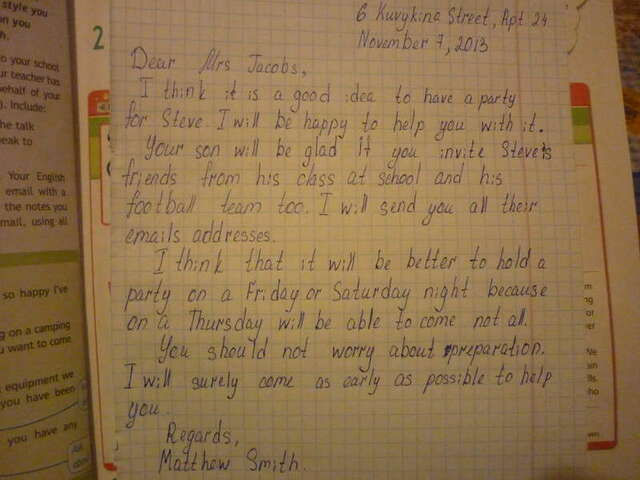 6 Kuvykina Street, Apt 24
November 7, 2013
Dear Mrs Jacobs,
I think it is a good idea to have a party
for Steve. I will be happy to help you with it.
Your son will be glad if you invite Steve's
friends from his class at school and his
football team too. I will send you all their
emails addresses.
I think that it will be better to hold a
party on a Friday or Saturday night because
on a Thursday will be able to come not all.
You should not worry about preparation.
I will surely come as early as possible to help
you.
Regards,
Matthew Smith.
2
style you
on you
h.
o your school
ur teacher has
ehalf of your
). Include:
he talk
eak to
Your English
email with a
the notes you
mail, using all
so happy I've
g on a camping
u want to come
equipment we
you have been
you have any